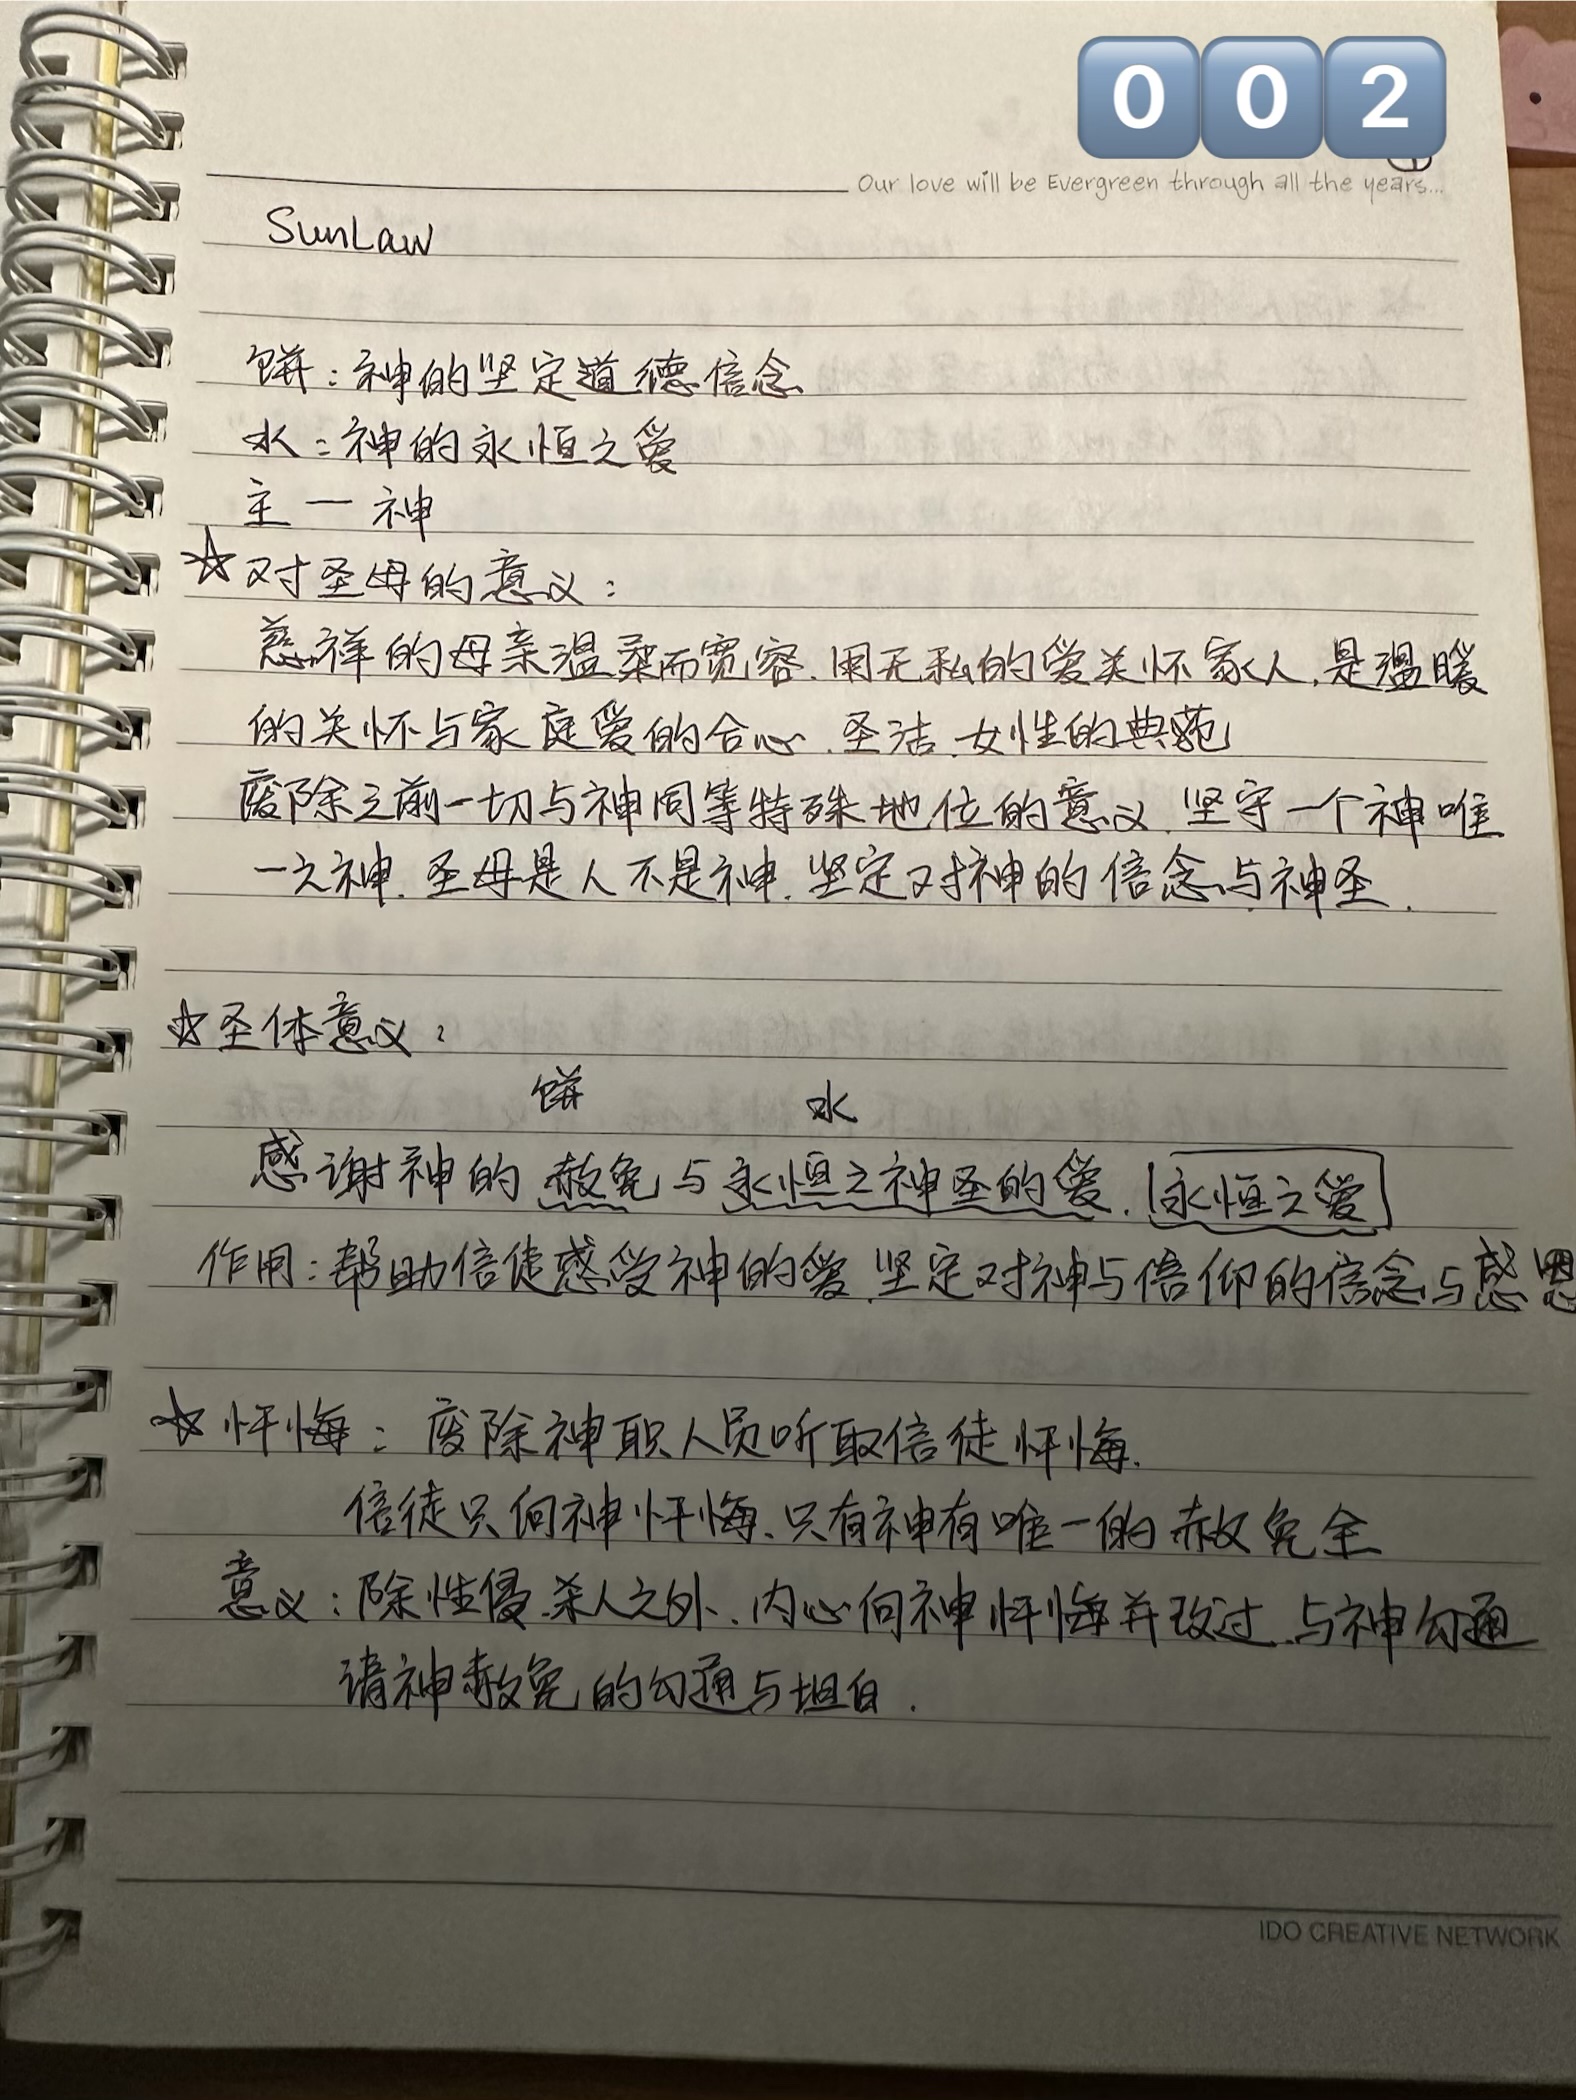 002
Our love will be Evergreen through all the years...
SunLaw
饼：神的坚定道德信念
水：神的永恒之爱
主一神
☆对圣母的意义：
慈祥的母亲温柔而宽容.用无私的爱关怀家人,是温暖
的关怀与家庭爱的合心.圣洁.女性的典范
废除之前一切与神同等特殊地位的意义.坚守一个神唯
一之神.圣母是人不是神.坚定对神的信念与神圣.
☆圣体意义：
饼 水
感谢神的赦免与永恒之神圣的爱.[永恒之爱]
作用：帮助信徒感受神的爱.坚定对神与信仰的信念与感恩
☆忏悔：废除神职人员听取信徒忏悔.
信徒只向神忏悔.只有神有唯一的赦免全
意义：除性侵.杀人之外.内心向神忏悔并改过.与神勾通
请神赦免的勾通与坦白.
IDO CREATIVE NETWORK